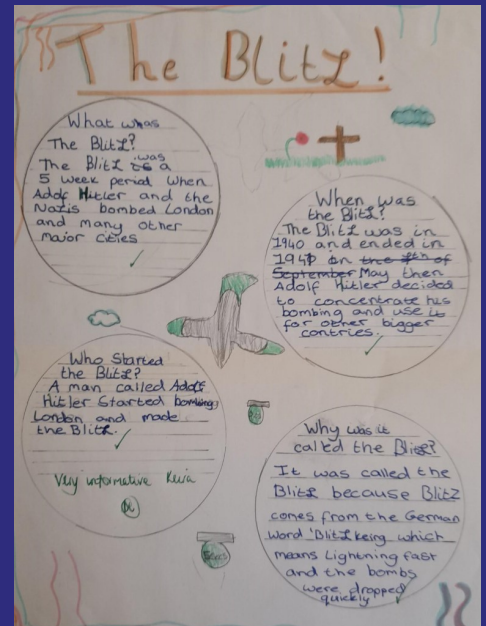 The Blitz!
What was
The Blitz?
The Blitz was a
5 week period when
Adolf Hitler and the
Nazis bombed London
and many other
major cities
When was
the Blitz?
The Blitz was in
1940 and ended in
1941 on the 7th of
September May then
Adolf Hitler decided
to concentrate his
bombing and use it
for other bigger
contries.
Who Started
the Blitz?
A man called Adolf
Hitler Started bombing
London and made
the Blitz.
Very informative
Why was it
called the Blitz?
It was called the
Blitz because Blitz
comes from the German
word 'Blitzkeirg which
means Lightning fast
and the bombs
were dropped
quickly